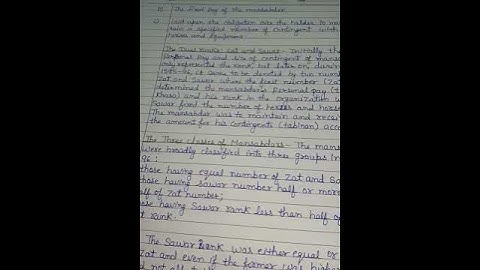 b) The fixed pay of the mansabdar
c) Laid upon the obligation over the holder to main
tain a specified number of contingent with
horses and equipment.
The Dual Ranks: Zat and Sawar - Initially the
Personal Pay and size of contingent of mans
only represented the rank, but later on, durin
1595-96, it came to be denoted by two num
Zat and Sawar where the first number (Za
determined the mansabdar's Personal pay (t
khass) and his rank in the organization w
Sawar fixed the number of horses and horse
The mansabdar was to maintain and recei
the amount for his contingents (tabinan) acco
The Three classes of Mansabdars - The mans
were broadly classified into three groups in
96:
those having equal number of Zat and Sa
those having sawar number half or more
alf of Zat number;
ose having Sawar Rank less than half of
t rank.
The Sawar Rank was either equal or
Zat and even if the former was higher